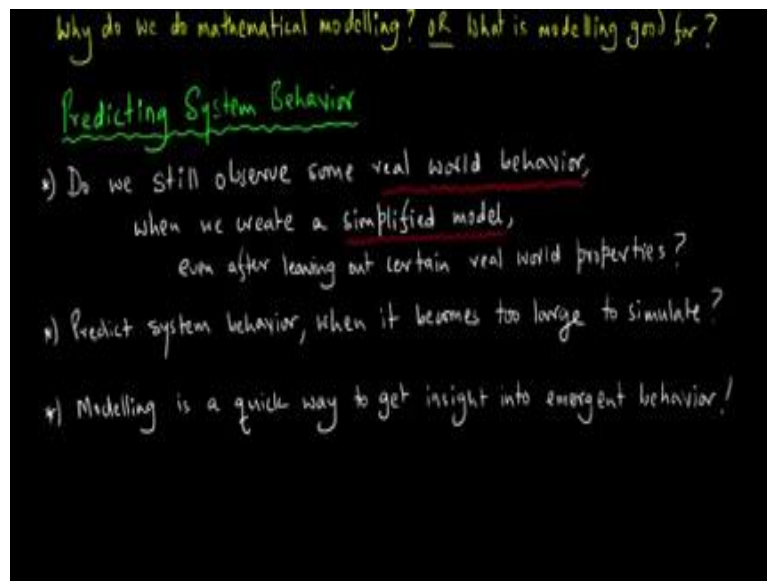 Why do we do mathematical modelling? OR What is modelling good for?
Predicting System Behavior
*) Do we still observe some real world behavior,
when we create a simplified model,
even after leaving out certain real world properties?
*) Predict system behavior, when it becomes too large to simulate?
*) Modelling is a quick way to get insight into emergent behavior!